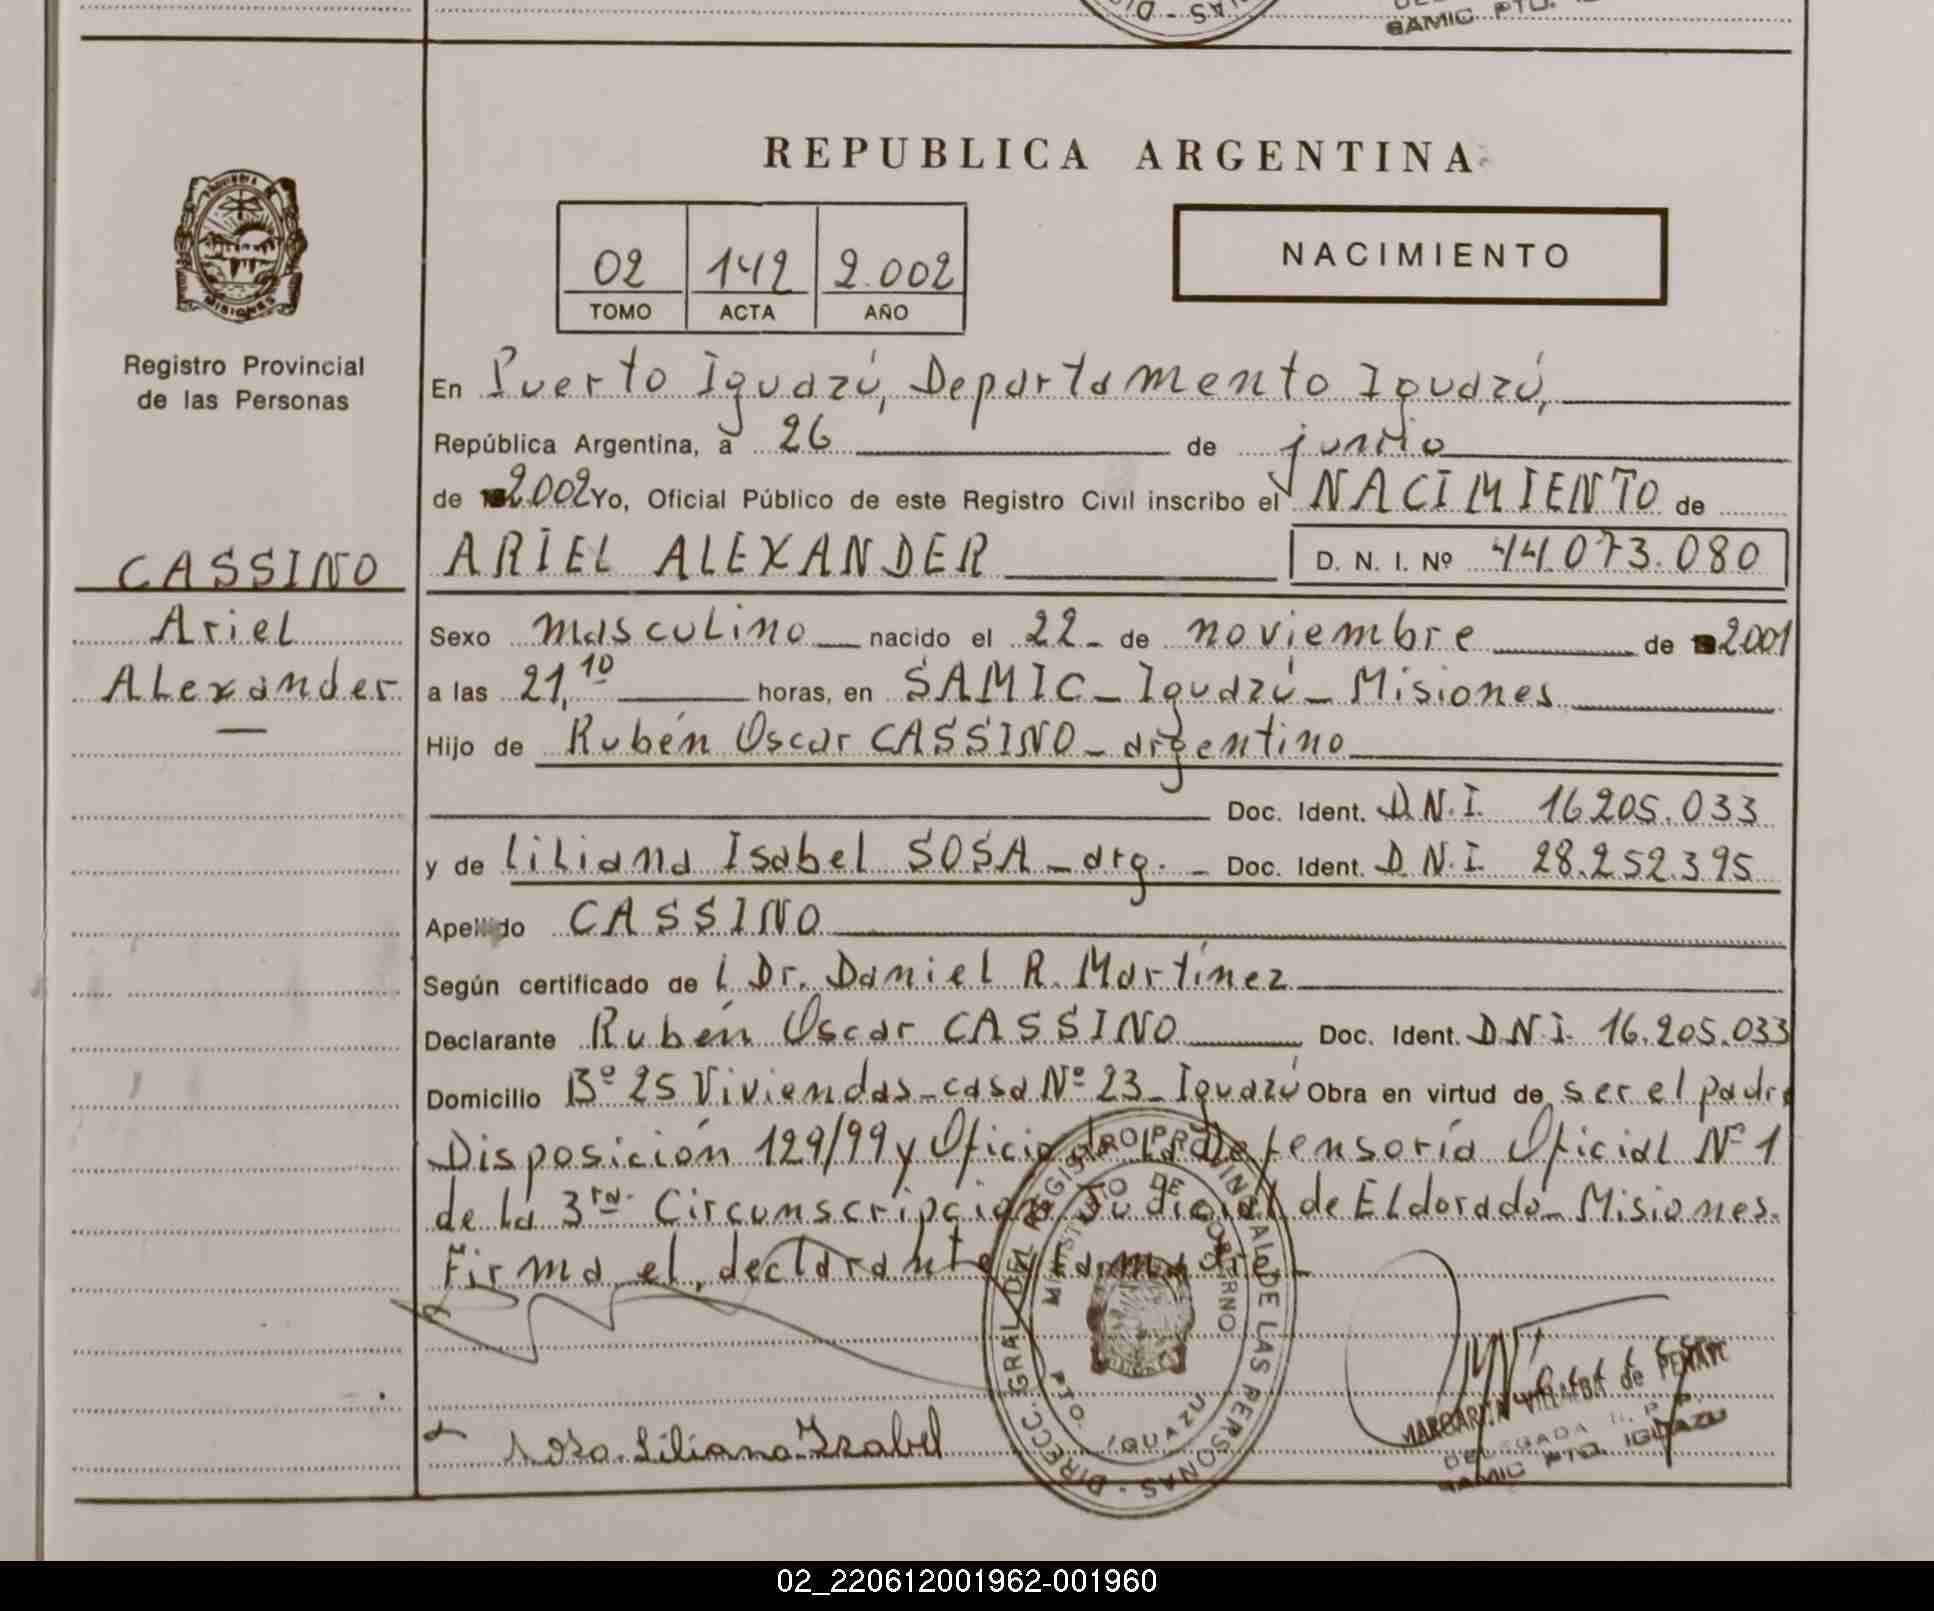 SAMIC PTO.
REPUBLICA ARGENTINA
02 142 2.002
TOMO ACTA AÑO
NACIMIENTO
PROVINCIA DE
MISIONES
Registro Provincial
de las Personas
CASSINO
Ariel
Alexander
En Puerto Iguazú, Departamento Iguazú,
República Argentina, a 26 de junio
de 2002 Yo, Oficial Público de este Registro Civil inscribo el NACIMIENTO de
ARIEL ALEXANDER D. N. I. Nº 44.073.080
Sexo masculino nacido el 22 - de noviembre de 2001
a las 21,10 horas, en SAMIC - Iguazú - Misiones
Hijo de Rubén Oscar CASSINO - argentino
Doc. Ident. D.N.I. 16.205.033
y de Liliana Isabel SOSA - arg. - Doc. Ident. D.N.I. 28.252.395
Apellido CASSINO
Según certificado de l Dr. Daniel R. Martínez
Declarante Rubén Oscar CASSINO Doc. Ident. D.N.I. 16.205.033
Domicilio Bº 25 Viviendas - casa Nº 23 - Iguazú Obra en virtud de ser el padre
Disposición 129/99 y Oficio de la Defensoría Oficial Nº 1
de la 3ra. Circunscripción Judicial de Eldorado - Misiones.
Firma el declarante
Sosa Liliana Isabel
DIRECC. GRAL. DEL REGISTRO PROVINCIAL DE LAS PERSONAS -
MINISTERIO DE GOBIERNO
PTO. IGUAZU
MARGARITA VILLALBA de
DELEGADA R. P. P.
SAMIC PTO. IGUAZU
02_220612001962-001960